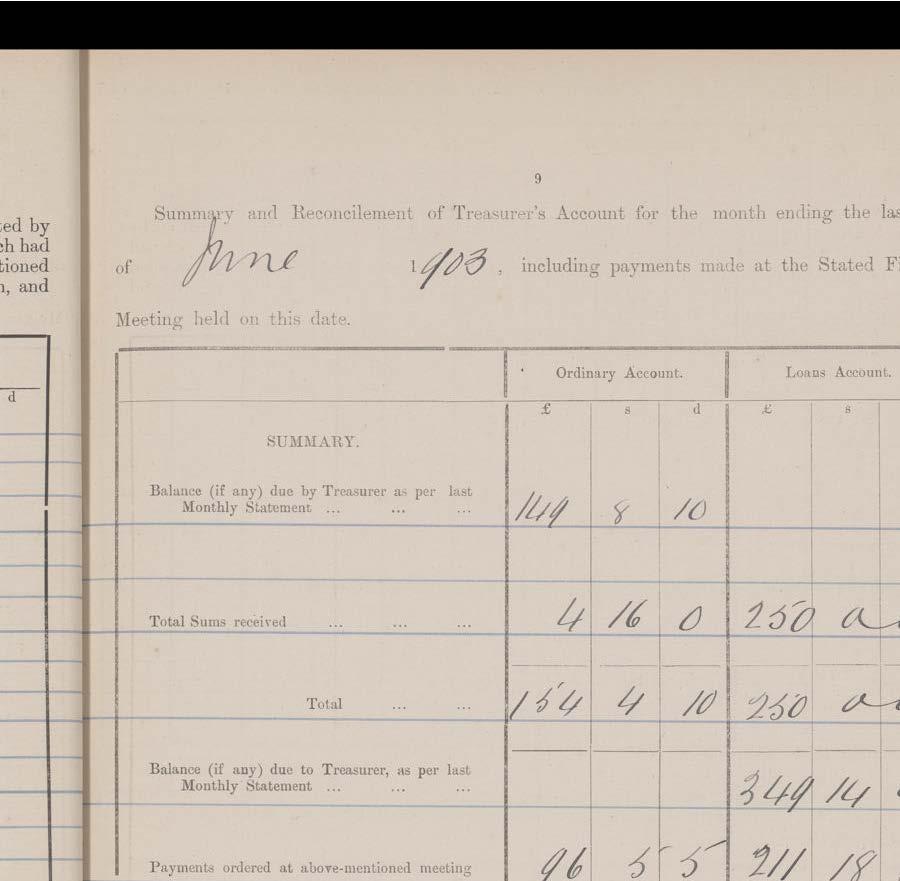 9
ted by
ch had
tioned
n, and
d
Summary and Reconcilement of Treasurer's Account for the month ending the las
of June 1903, including payments made at the Stated Fi
Meeting held on this date.
Ordinary Account. Loans Account.
£ s d £ s
SUMMARY.
Balance (if any) due by Treasurer as per last
Monthly Statement ... ... ... 149 8 10
Total Sums received ... ... ... 4 16 0 250 0
Total ... ... 154 4 10 250 0
Balance (if any) due to Treasurer, as per last
Monthly Statement ... ... ... 349 14
Payments ordered at above-mentioned meeting 96 5 5 211 18